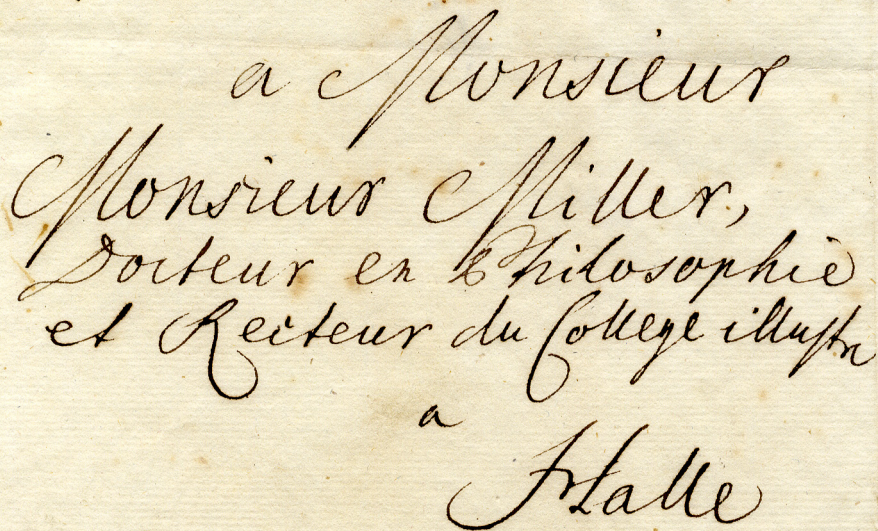 a Monsieur
Monsieur Miller,
Docteur en Philosophie
et Recteur du College illustre
a
Halle